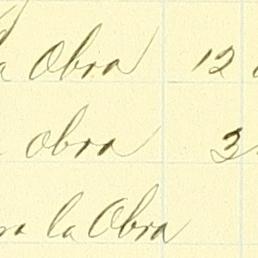 a Obra 12
obra 3
la Obra